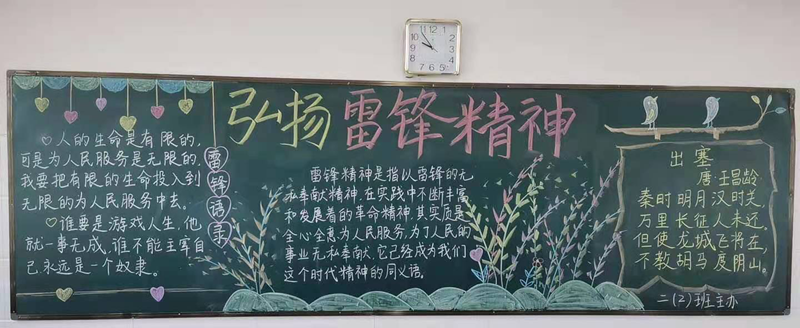 弘扬雷锋精神
♡人的生命是有限的,
可是为人民服务是无限的,
我要把有限的生命投入到
无限的为人民服务中去。
♡谁要是游戏人生,他
就一事无成,谁不能主宰自
己,永远是一个奴隶。
雷锋语录
雷锋精神是指以雷锋的无
私奉献精神,在实践中不断丰富
和发展着的革命精神,其实质是
全心全意为人民服务,为了人民的
事业无私奉献,它已经成为我们
这个时代精神的同义语。
出塞
唐 王昌龄
秦时明月汉时关,
万里长征人未还。
但使龙城飞将在,
不教胡马度阴山。
二(2)班主办
12
11
10
9
8
7
6
5
4
3
2
1